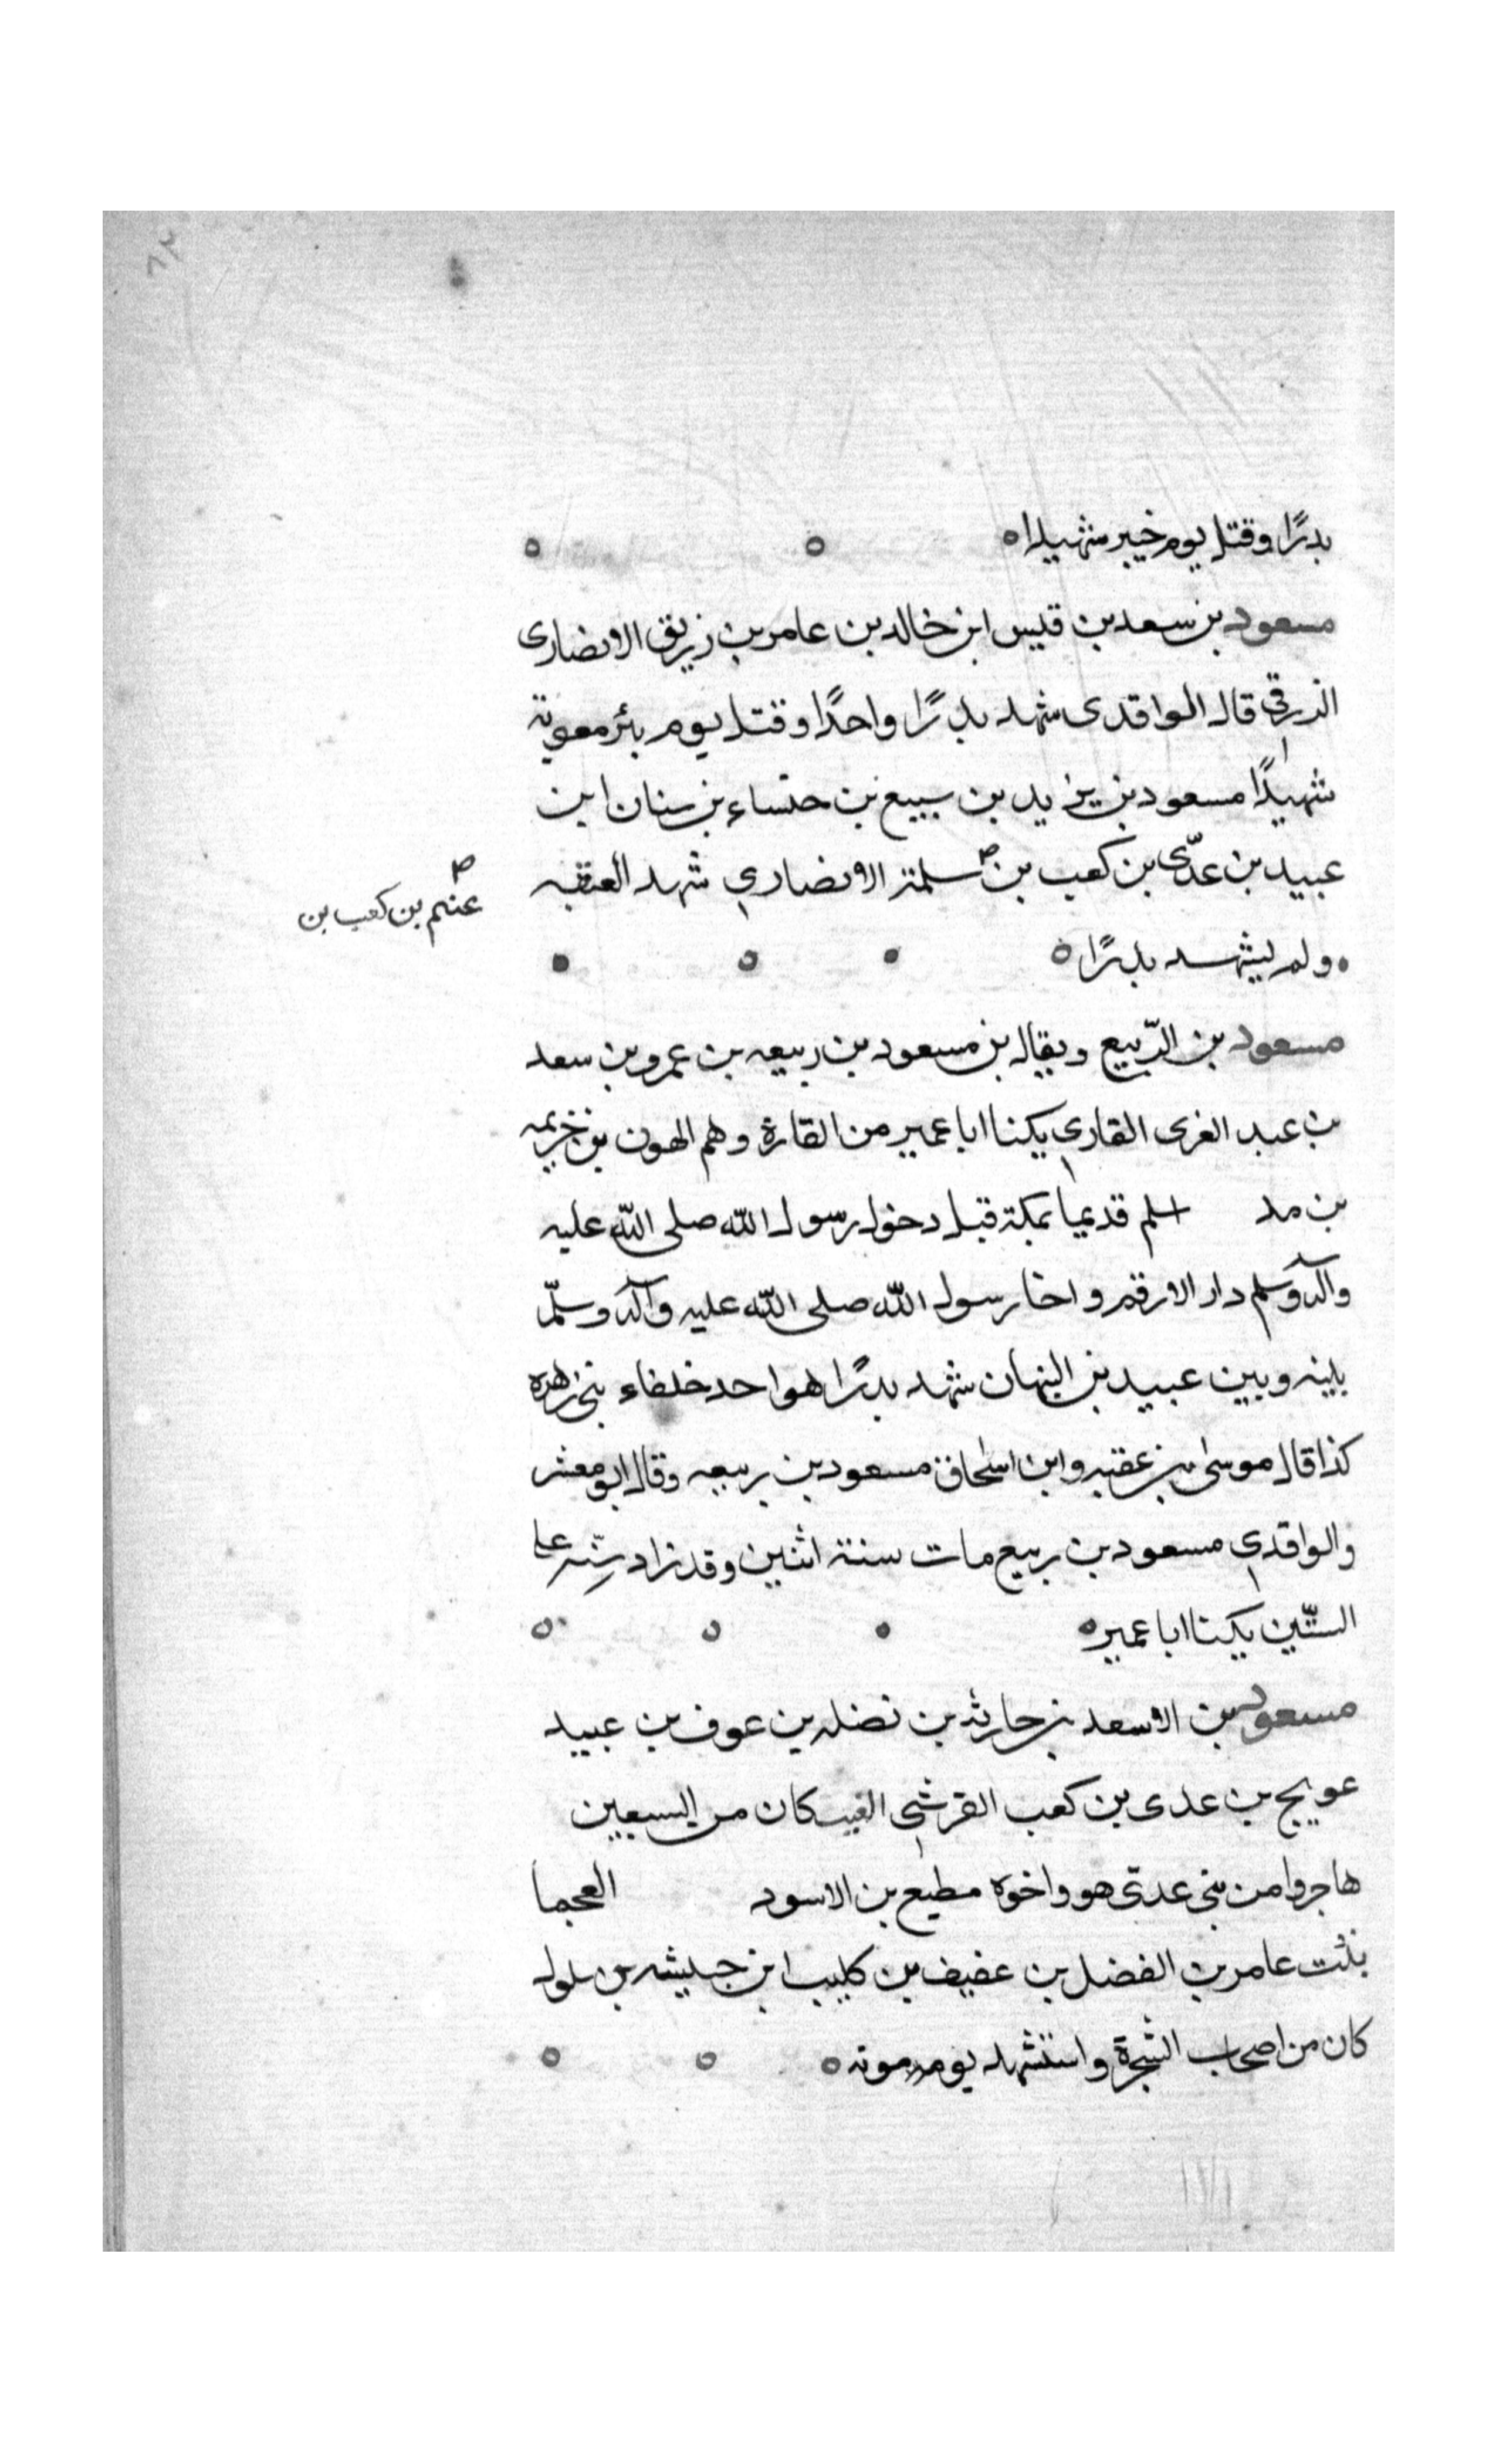 بدرًا وقتل يوم خيبر شهيدا
مسعود بن سعد بن قيس ابن خالد بن عامر بن زريق الانصارى
الزرقي قال الواقدى شهد بدرًا واحدًا وقتل يوم بئر معونة
شهيدًا مسعود بن يزيد بن سبيع بن خنساء بن سنان ابن
عبيد بن عدّى بن كعب بن سلمة الانصاري شهد العقبه
غنم بن كعب بن
ولم يشهد بدرًا
مسعود بن الرّبيع ويقال بن مسعود بن ربيعه بن عمرو بن سعد
بن عبد العزى القاري يكنا ابا عمير من القارة وهم الهون بن خزيمه
بن مد اسلم قديما بمكة قبل دخول رسول الله صلى الله عليه
وآله وسلم دار الارقم واخا رسول الله صلى الله عليه وآله وسلّم
بينه وبين عبيد بن التيهان شهد بدرًا هو احد خلفاء بنى زهره
كذا قال موسى بن عقبه وابن اسحاق مسعود بن ربيعه وقال ابو معشر
والواقدي مسعود بن ربيع مات سنة اثنين وقد زاد سنّه على
الستّين يكنا ابا عمير
مسعود بن الاسعد بن حارثه بن نضله بن عوف بن عبيد
عويج بن عدى بن كعب القرشي كان من السبعين
هاجروا من بنى عدّى هو واخوه مطيع بن الاسود العجما
بنت عامر بن الفضل بن عفيف بن كليب ابن حبيشه بن سلول
كان من اصحاب الشجرة واستشهد يوم موته